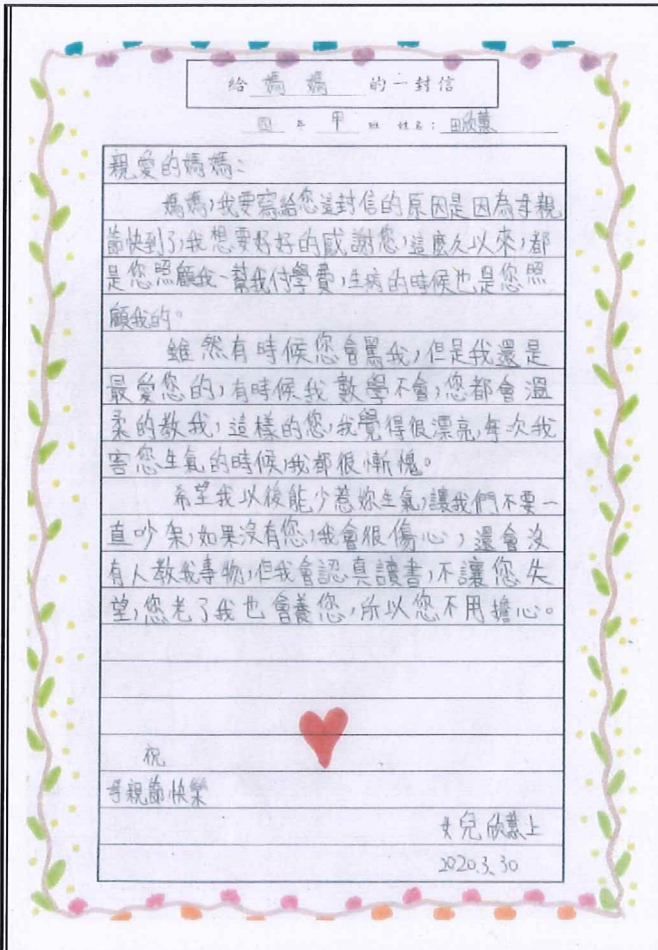 給 媽媽 的一封信
四 年 甲 班 姓名：田欣蕙
親愛的媽媽：
媽媽，我要寫給您這封信的原因是因為母親
節快到了，我想要好好的感謝您，這麼久以來，都
是您照顧我、幫我付學費，生病的時候也是您照
顧我的。
雖然有時候您會罵我，但是我還是
最愛您的，有時候我數學不會，您都會溫
柔的教我，這樣的您，我覺得很漂亮，每次我
害您生氣的時候，我都很慚愧。
希望我以後能少惹妳生氣，讓我們不要一
直吵架，如果沒有您，我會很傷心，還會沒
有人教我事物，但我會認真讀書，不讓您失
望，您老了我也會養您，所以您不用擔心。
祝
母親節快樂
女兒欣蕙上
2020.3.30